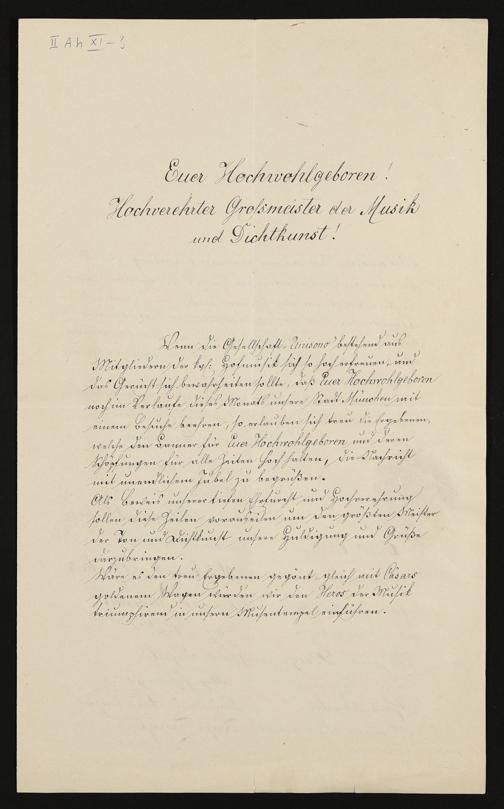 II Ah XI-3
Euer Hochwohlgeboren!
Hochverehrter Großmeister der Musik
und Dichtkunst!
Wenn die Gesellschaft „Unisono" bestehend aus
Mitgliedern der kgl: Hofmusik sich so hoch erfreuen, und
das Gerücht sich bewahrheiten sollte, daß Euer Hochwohlgeboren
noch im Verlaufe dieses Monats unsere Stadt München mit
einem Besuche beehren, so erlauben sich treu die Ergebenen,
welche den Banner für Euer Hochwohlgeboren und deren
Schöpfungen für alle Zeiten hoch halten, die Nachricht
mit unendlichem Jubel zu begrüßen.
Als Beweis unserer tiefen Ehrfurcht und Hochverehrung
sollen diese Zeilen vorauseilen um den größten Meister
der Ton und Dichtkunst unsere Huldigung und Grüße
darzubringen.
Wäre es den treu Ergebenen gegönt gleich mit Cäsars
goldenem Wagen würden wir den Heros der Musik
triumphirend in unsern Musentempel einführen.